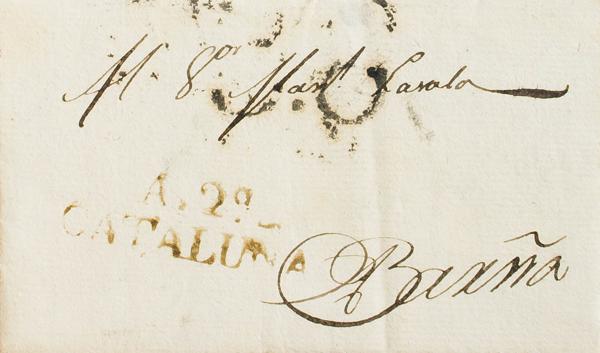 Al Sor Mart Casals
A. 2º
CATALUÑA
Barña